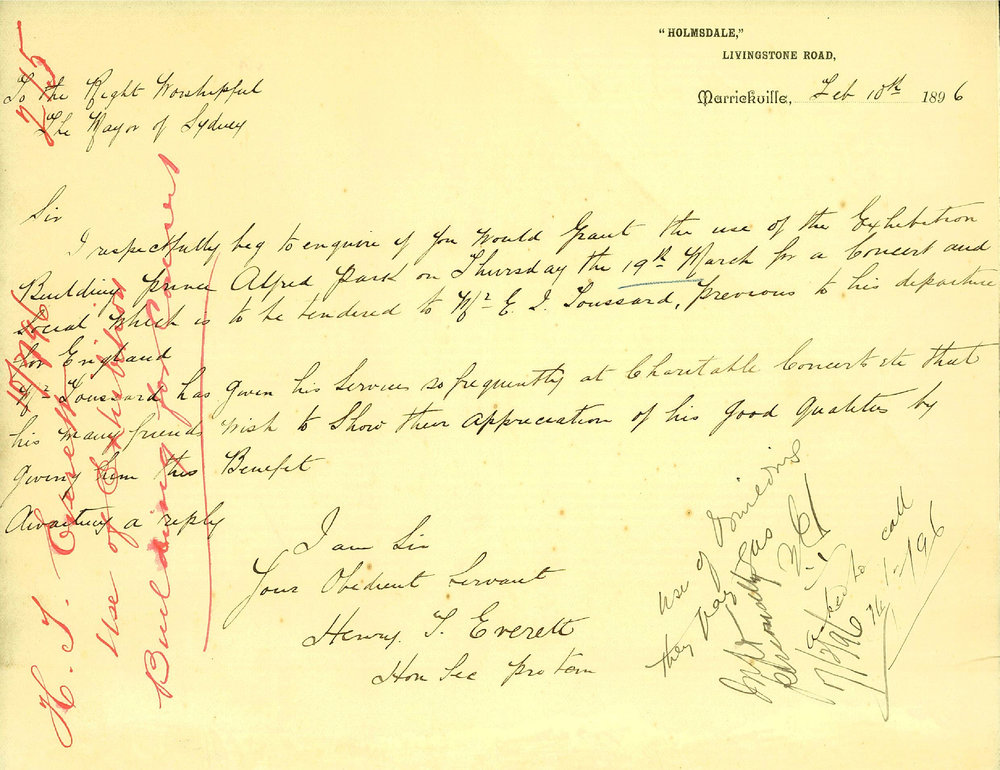 "HOLMSDALE,"
LIVINGSTONE ROAD,
Marrickville, Feb 10th 1896
To the Right Worshipful
The Mayor of Sydney
Sir
I respectfully beg to enquire if you would Grant the use of the Exhibition
Building Prince Alfred Park on Thursday the 19th March for a Concert and
Social which is to be tendered to Mr E. I. Toussard, previous to his departure
for England
Mr Toussard has given his Services so frequently at Charitable Concerts etc that
his many friends wish to Show their Appreciation of his Good Qualities by
giving him this Benefit
Awaiting a reply
I am Sir
Your Obedient Servant
Henry T. Everett
Hon Sec pro tem
245
10/2/96
H. T. Everett
Use of Exhibition
Building for Concert
Use of
they pay gas
asked to call